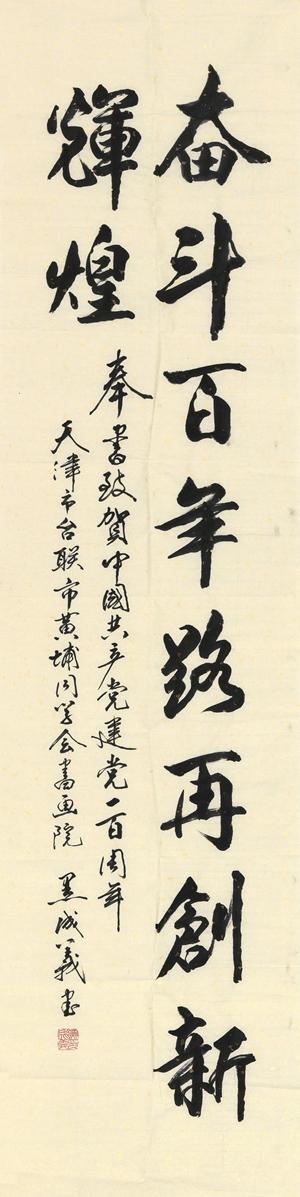 奋斗百年路再創新
輝煌
奉書致贺中國共产党建党一百周年
天津市台联市黄埔同学会書画院 黑成義书